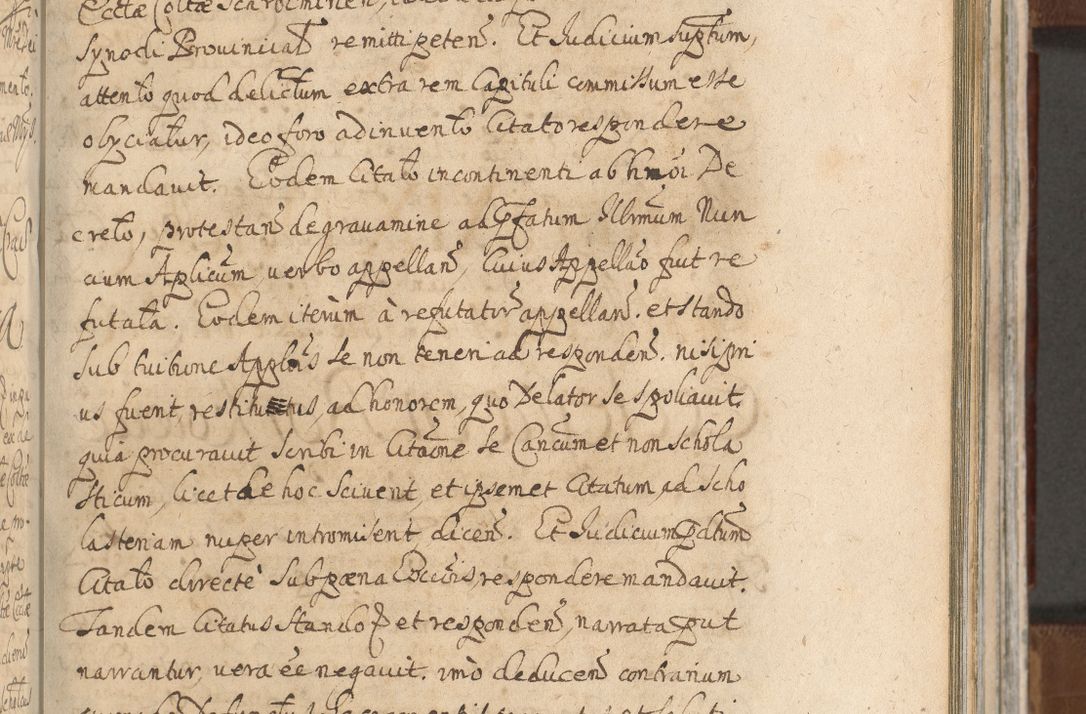 Synodi Provinciat remitti peten. Et Judicium suptum,
attento quod delictum extra rem Capituli commissum esse
obyciatur, ideo foro adinvento Citato respondere
mandavit. Eodem Citato incontinenti ab hmoi De
creto, protestan de gravamine ad pfatum Illrmum Nun
cium Aplicum, verbo appellan, cuius Appellao fuit re
futata. Eodem iterum à refutator appellan. et stando
sub tuitione Applnis se non teneri ad responden. nisi pri
us fuerit restitutus, ad honorem, quo Delator se spoliavit.
quia procuravit scribi in Citaone se Cancum et non schola
sticum, licet de hoc sciverit, et ipsemet Citatum ad scho
lasteriam nuper intromiserit dicen. Et Judicium pdtum
Citato directe sub pœna Excois, respondere mandavit.
Tandem Citatus stando p et responden, narrata put
narrantur, vera ee negavit. imo deducen contrarium